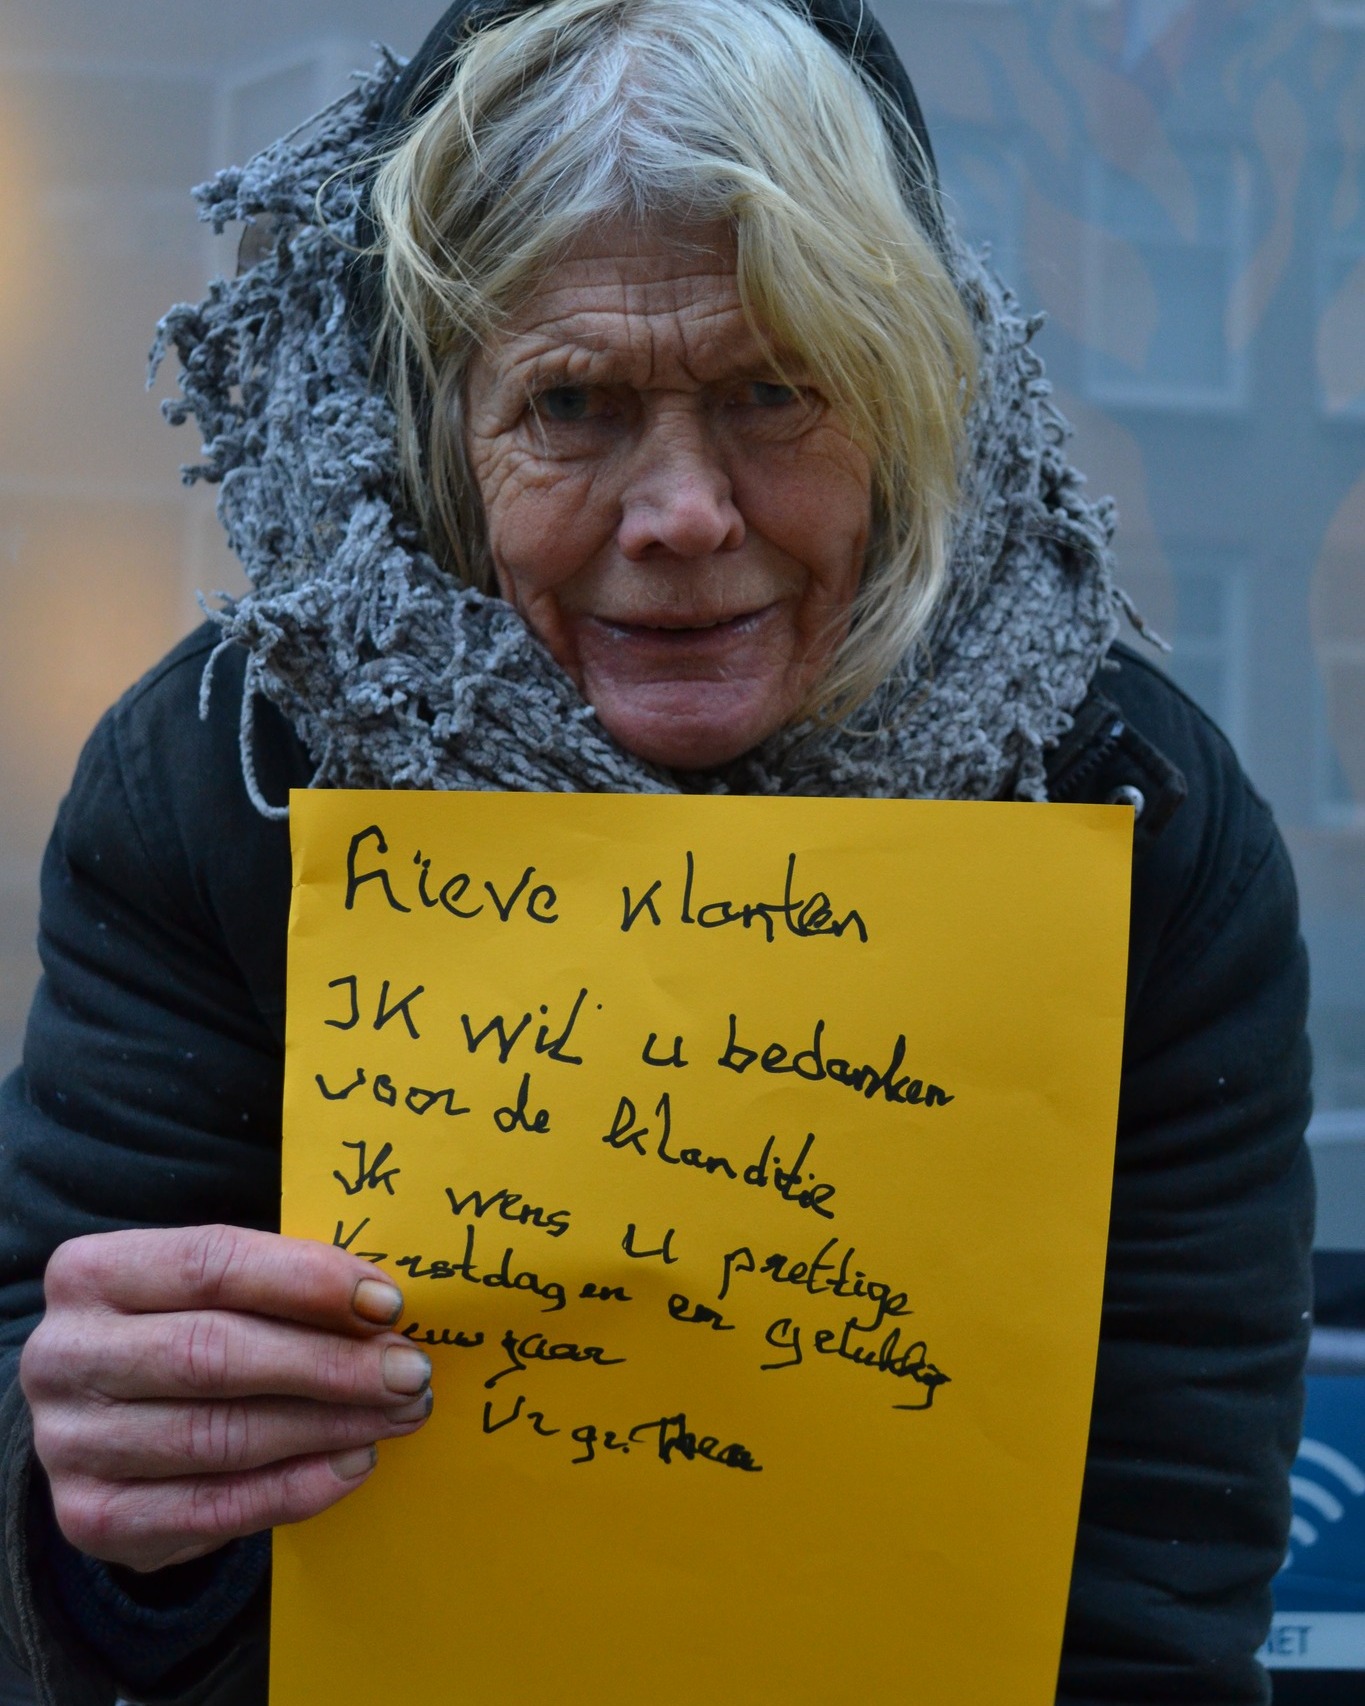 Lieve klanten
Ik wil u bedanken
voor de klanditie
Ik wens u prettige
Kerstdagen en gelukkig
euwjaar
Vr gr. Thea
NET